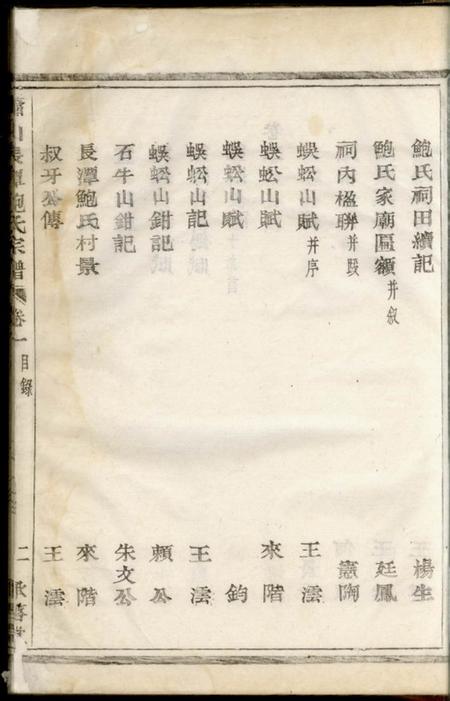 鮑氏祠田續記 楊生
鮑氏家廟匾額并叙 廷鳳
祠内楹聯并跋 憲陶
蜈蚣山賦并序 王澐
蜈蚣山賦 來階
蜈蚣山賦 鈞
蜈蚣山記 王澐
蜈蚣山鉗記 賴公
石牛山鉗記 朱文公
長潭鮑氏村景 來階
叔牙公傳 王澐
蕭山長潭鮑氏宗譜 卷一 目錄 二